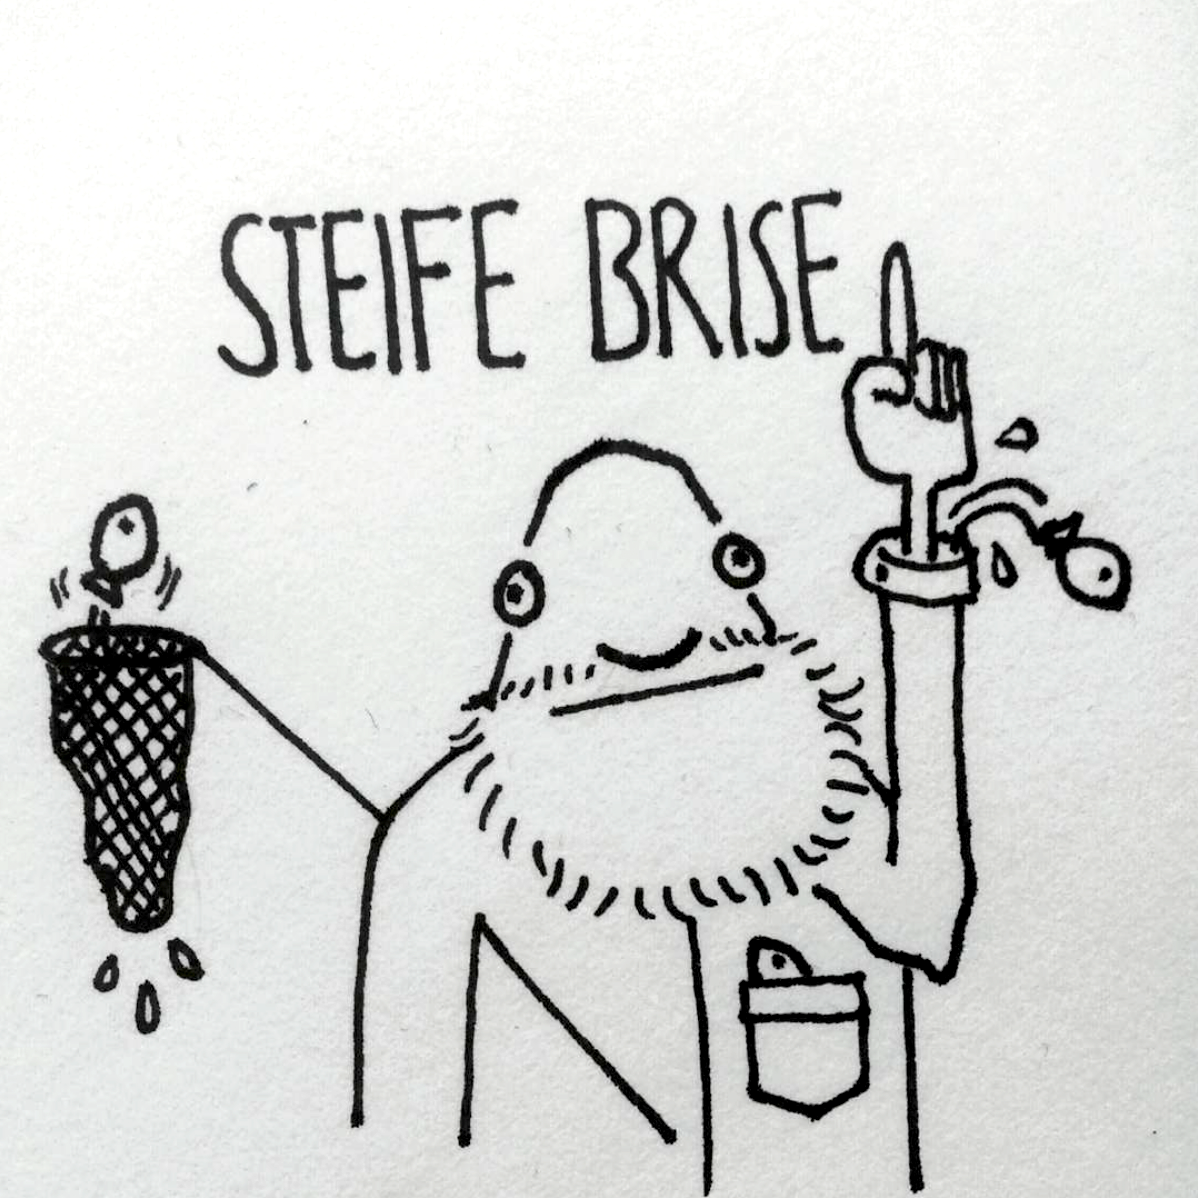 STEIFE BRISE